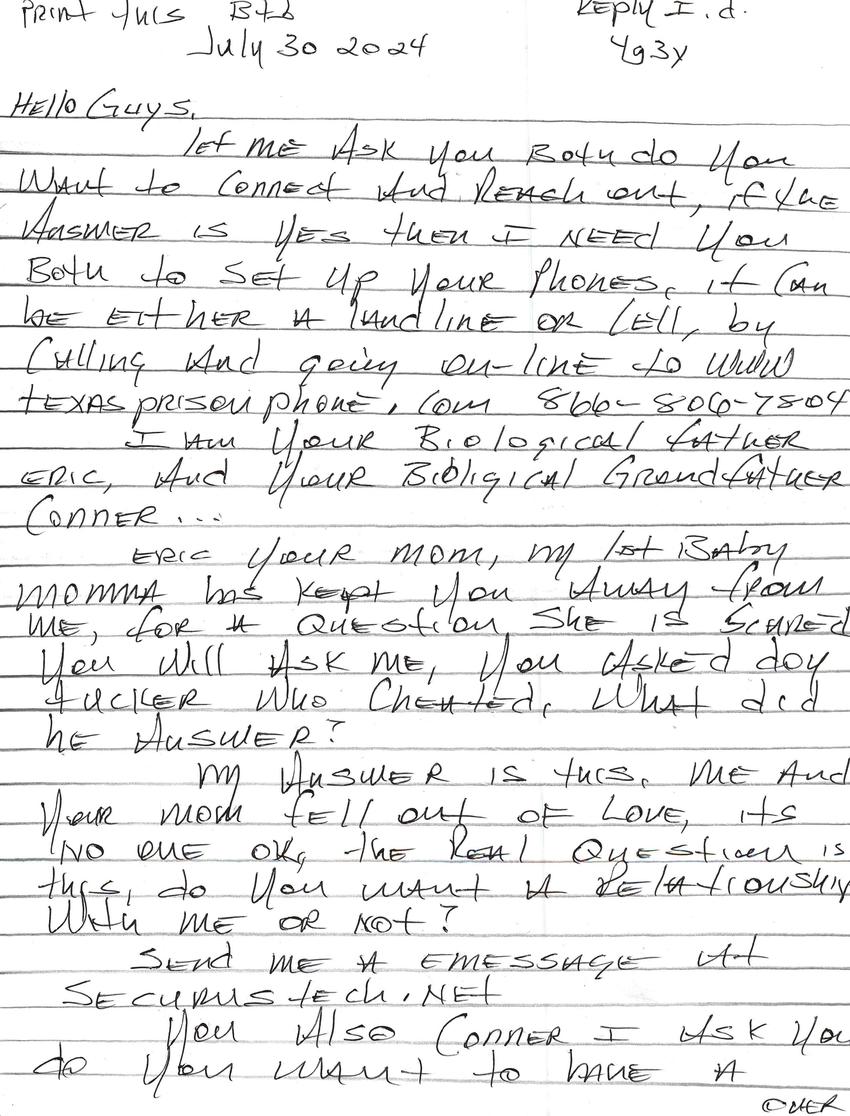 Print this Btb Reply I.d.
July 30 2024 4g3y
Hello Guys,
let me Ask you Both do you
Want to Connect And Reach out, if the
Answer is yes then I need you
Both to set up your Phones, it Can
be either A landline or Cell, by
Calling And going on-line to www
texasprisonphone.com 866-806-7804
I am your Biological father
Eric, And your Bioligical Grandfather
Conner...
Eric your mom, my 1st Baby
momma has kept you Away from
me, for A Question she is Scared
you will Ask me, you Asked
Who Cheated, What did
he Answer?
My Answer is this, me And
your mom fell out of Love, its
No one ok, the Real Question is
this, do you want A Relationship
With me or not?
Send me A emessage at
Securustech.net
You Also Conner I Ask you
do you want to have A
over